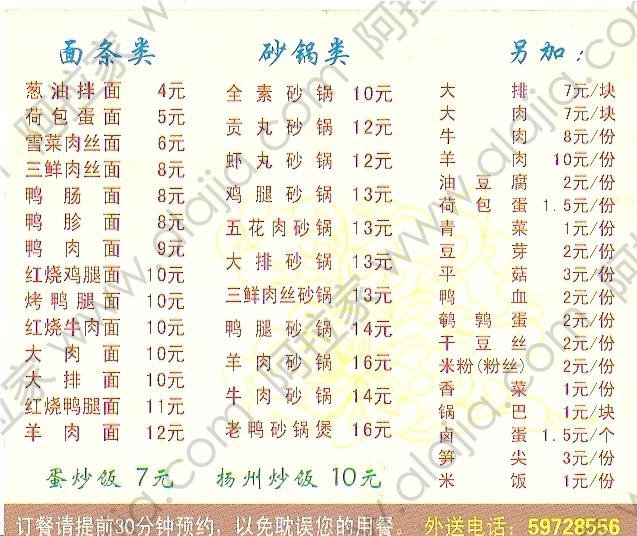 面条类
葱油拌面 4元
荷包蛋面 5元
雪菜肉丝面 6元
三鲜肉丝面 8元
鸭肠面 8元
鸭胗面 8元
鸭肉面 9元
红烧鸡腿面 10元
烤鸭腿面 10元
红烧牛肉面 10元
大肉面 10元
大排面 10元
红烧鸭腿面 11元
羊肉面 12元
砂锅类
全素砂锅 10元
贡丸砂锅 12元
虾丸砂锅 12元
鸡腿砂锅 13元
五花肉砂锅 13元
大排砂锅 13元
三鲜肉丝砂锅 13元
鸭腿砂锅 14元
羊肉砂锅 16元
牛肉砂锅 14元
老鸭砂锅煲 16元
另加：
大排 7元/块
大肉 7元/块
牛肉 8元/份
羊肉 10元/份
油豆腐 2元/份
荷包蛋 1.5元/份
青菜 1元/份
豆芽 2元/份
平菇 3元/份
鸭血 2元/份
鹌鹑蛋 2元/份
干豆丝 2元/份
米粉(粉丝) 2元/份
香菜 1元/份
锅巴 1元/块
卤蛋 1.5元/个
笋尖 3元/份
米饭 1元/份
蛋炒饭 7元 扬州炒饭 10元
订餐请提前30分钟预约，以免耽误您的用餐。 外送电话：59728556
阿拉家 www.alajia.com